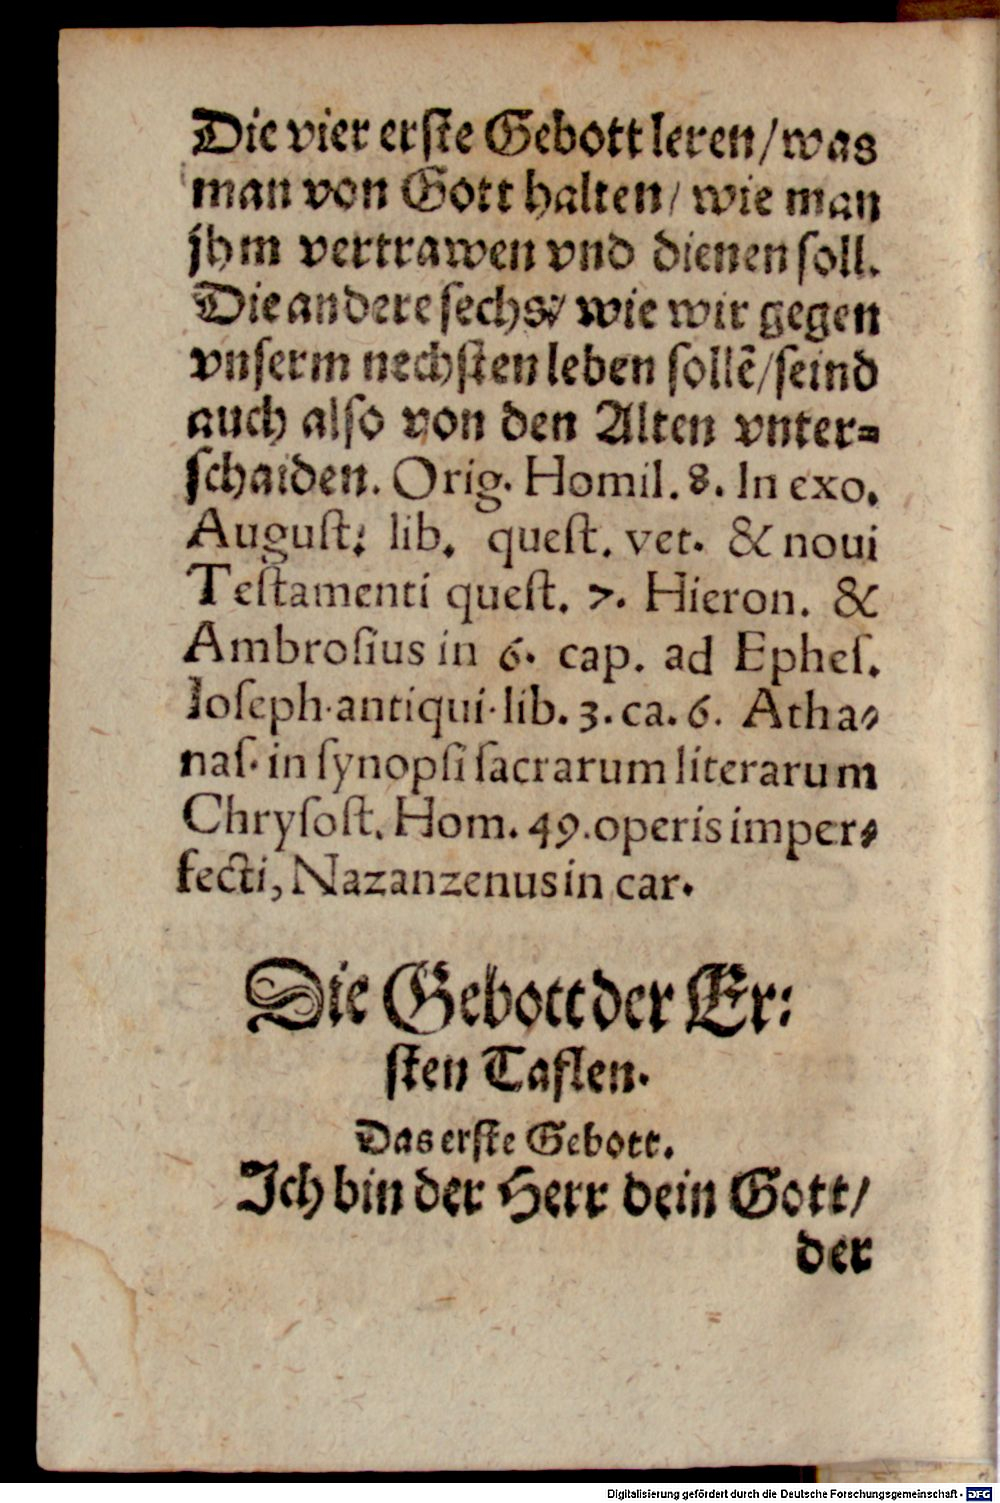 Die vier erſte Gebott leren/was
man von Gott halten/ wie man
jhm vertrawen vnd dienen ſoll.
Die andere ſechs/ wie wir gegen
vnſerm nechſten leben ſollē/ſeind
auch alſo von den Alten vnter⸗
ſchaiden. Orig. Homil. 8. In exo.
Auguſt: lib. queſt. vet. & noui
Teſtamenti queſt. 7. Hieron. &
Ambroſius in 6. cap. ad Epheſ.
Ioſeph. antiqui. lib. 3. ca. 6. Atha⸗
naſ. in ſynopſi ſacrarum literarum
Chryſoſt. Hom. 49. operis imper⸗
fecti, Nazanzenus in car.
Die Gebott der Er:
ſten Taflen.
Das erſte Gebott.
Ich bin der Herr dein Gott/
der
Digitalisierung gefördert durch die Deutsche Forschungsgemeinschaft - DFG